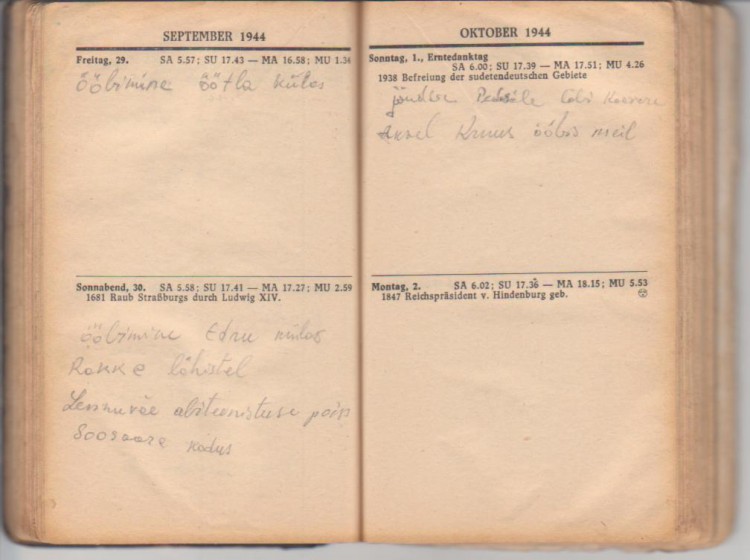 SEPTEMBER 1944
Freitag, 29. SA 5.57; SU 17.43 — MA 16.58; MU 1.34
ööbimine öötla külas
Sonnabend, 30. SA 5.58; SU 17.41 — MA 17.27; MU 2.59
1681 Raub Straßburgs durch Ludwig XIV.
ööbimine Edru külas
Rakke lähistel
Lennuväe abiteenistuse poiss
Soosaare kodus
OKTOBER 1944
Sonntag, 1., Erntedanktag
SA 6.00; SU 17.39 — MA 17.51; MU 4.26
1938 Befreiung der sudetendeutschen Gebiete
jõudse läbi Kaarere
Kruus ööbis meil
Montag, 2. SA 6.02; SU 17.36 — MA 18.15; MU 5.53
1847 Reichspräsident v. Hindenburg geb.